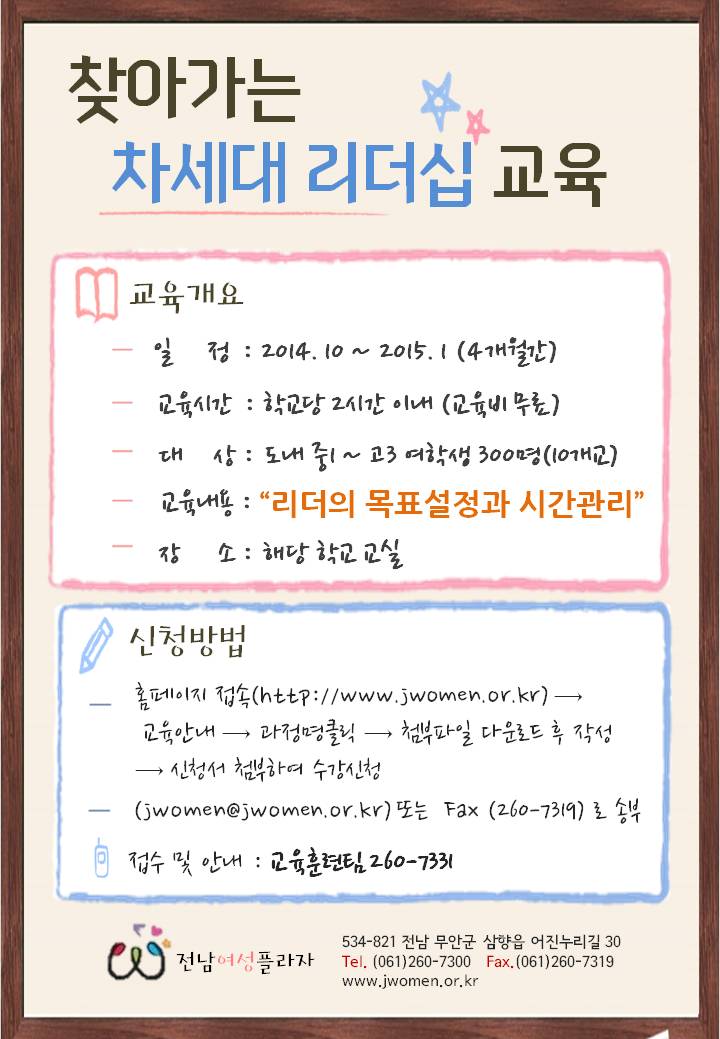 찾아가는
차세대 리더십 교육
교육개요
일 정 : 2014. 10 ~ 2015. 1 (4개월간)
교육시간 : 학교당 2시간 이내 (교육비 무료)
대 상 : 도내 중1 ~ 고3 여학생 300명(10개교)
교육내용 : “리더의 목표설정과 시간관리”
장 소 : 해당 학교 교실
신청방법
홈페이지 접속(http://www.jwomen.or.kr) →
교육안내 → 과정명클릭 → 첨부파일 다운로드 후 작성
→ 신청서 첨부하여 수강신청
(jwomen@jwomen.or.kr) 또는 Fax (260-7319) 로 송부
접수 및 안내 : 교육훈련팀 260-7331
전남여성플라자
534-821 전남 무안군 삼향읍 어진누리길 30
Tel. (061)260-7300 Fax.(061)260-7319
www.jwomen.or.kr